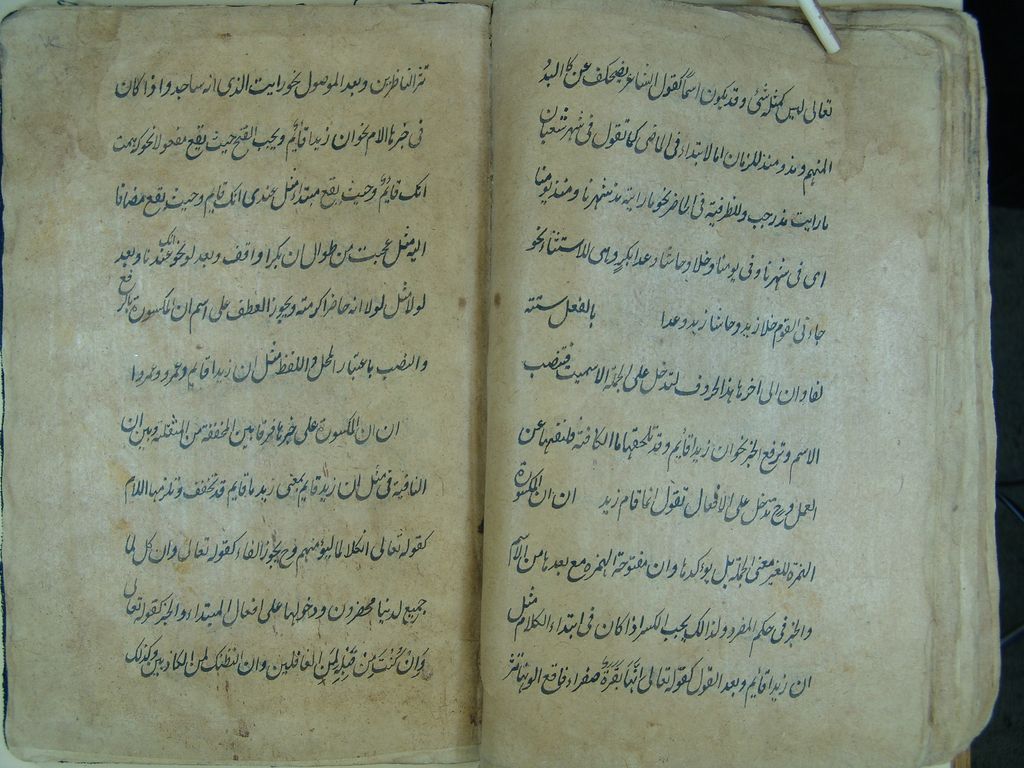 تعالى ليس كمثله شئ وقد يكون اسما كقول الشاعر يضحكن عن كالبرد
المنهم ومذ ومنذ للزمان اما لابتداء في الماضي كما تقول في شهر شعبان
ما رايت مذ رجب وللظرفية في الحاضر نحو ما رايته مذ شهرنا ومنذ يومنا
اى فى شهرنا وفى يومنا وخلا وحاشا وعدا بكر وهى للاستثناء نحو
جاءنى القوم خلا زيد وحاشا زيد وعدا بالفعل ستة
ان الى اخرها هذا الحروف تدخل على الجملة الاسمية فتنصب
الاسم وترفع الخبر نحو ان زيدا قايم وقد تلحقها ما الكافة عن
العمل وح تدخل على الافعال تقول انما قام زيد ان ان المكسورة
الهمزة للغير معنى الجملة بل يوكدها وان مفتوحة الهمزة مع بعدها من الاسم
والخبر فى حكم المفرد ولذالك يجب الكسر اذا كان فى ابتداء الكلام مثل
ان زيدا قايم وبعد القول كقوله تعالى انها بقرة صفراء فاقع لونها تسر
تسر الناظرين وبعد الموصول نحو رايت الذى انه ساجد واذا كان
فى خبرها لام نحو ان زيدا قايم ويجب الفتح حيث يقع مفعولا نحو كرهت
انك قايم وحيث يقع مبتدا مثل عندى انك قايم وحيث يقع مضافا
اليه مثل عجبت من طول ان بكرا واقف وبعد لو نحو لو انك عندنا وبعد
لولا مثل لولا انه حاضر اكرمته ويجوز العطف على اسم ان المكسورة بالرفع
والنصب باعتبار المحل واللفظ مثل ان زيدا قايم وعمرو وعمروا
ان ان المكسورة على خبرها فرقا بين المخففة من المثقلة وبين ان
النافية فى مثل ان زيد قايم بمعنى زيد ما قايم قد تخفف وتلزمها اللام
كقوله تعالى ان كلا لما ليوفينهم وح يجوز الغاء كقوله تعالى وان كل لما
جميع لدينا محضرون ودخولها على افعال المبتداء والخبر كقوله تعالى
وان كنت من قبله لمن الغافلين وان نظنك لمن الكاذبين وكذلك